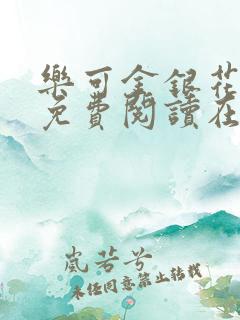 樂可金銀花
免費閱讀在
嵐若兮
未经同意禁止转载